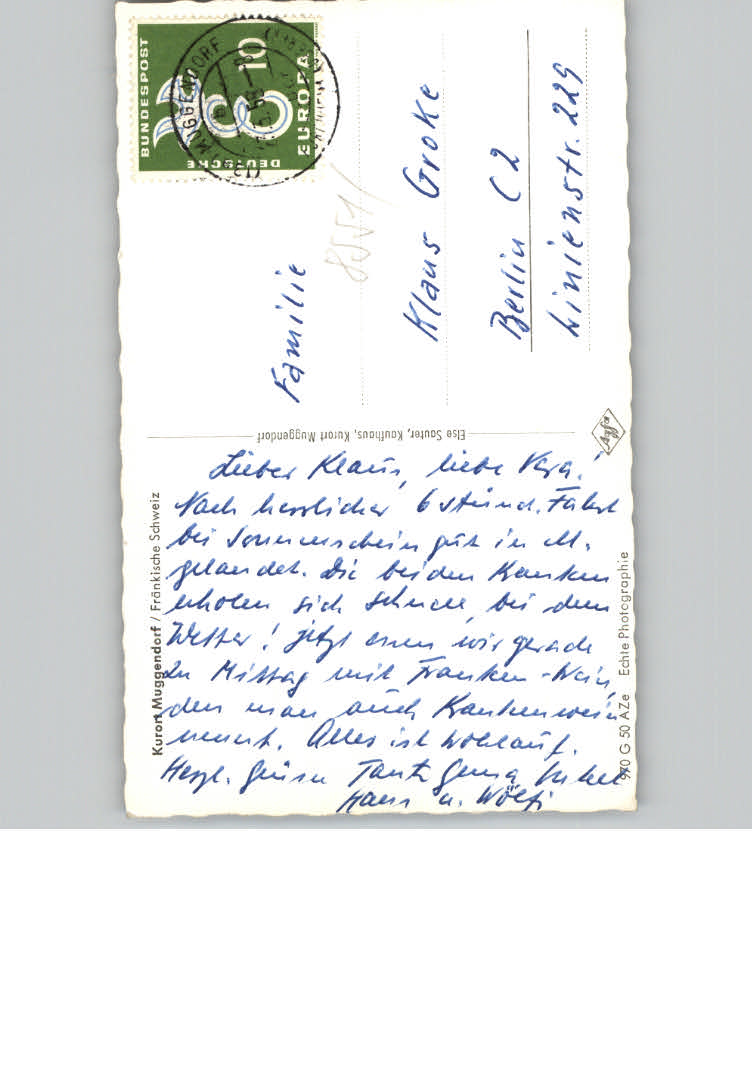 DEUTSCHE
BUNDESPOST
10
EUROPA
MUGGENDORF
Familie
Klaus Groke
Berlin C 2
Linienstr. 229
Else Sauter, Kaufhaus, Kurort Muggendorf
Agfa
Kurort Muggendorf / Fränkische Schweiz
Lieber Klaus, liebe Vera!
Nach herrlicher 6 stünd. Fahrt
bei Sonnenschein gut in M.
gelandet. Die beiden Kranken
erholen sich schnell bei dem
Wetter! Jetzt essen wir gerade
zu Mittag mit Franken-Wein,
den man auch Krankenwein
nennt. Alles ist wohlauf.
Herzl. Grüsse Tante
Hans u. Wölfi
970 G 50 AZe Echte Photographie